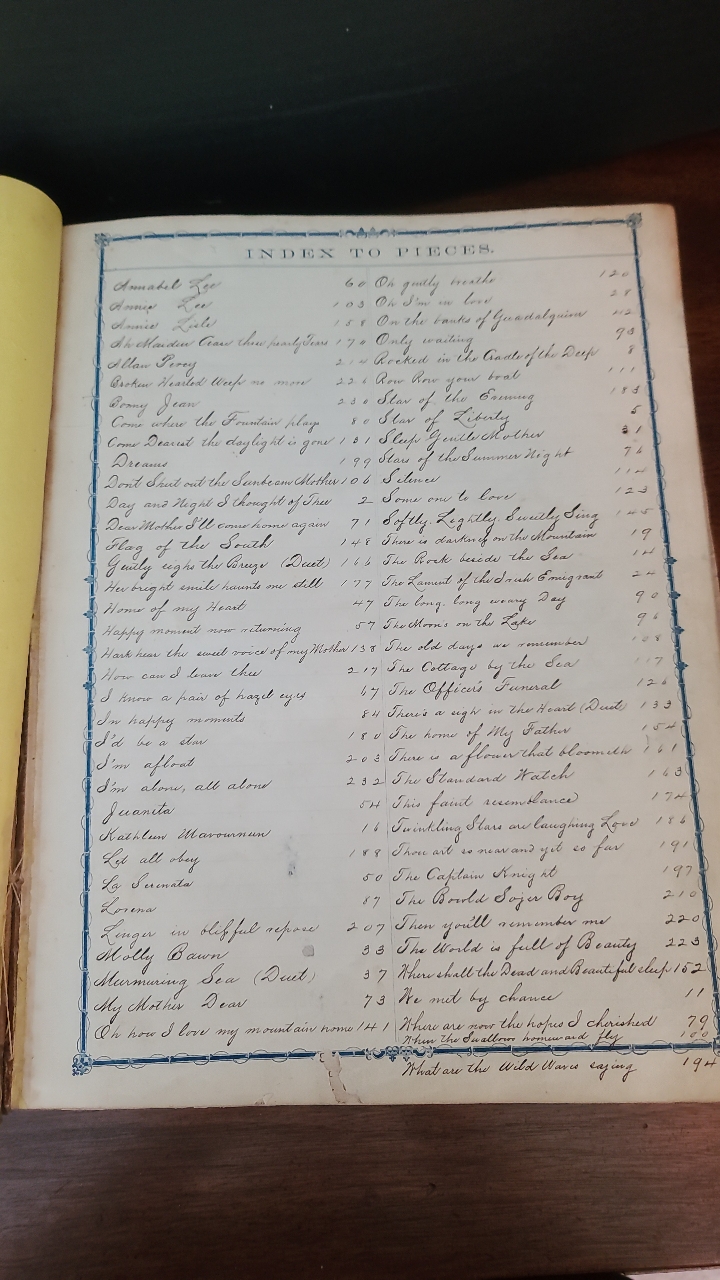 INDEX TO PIECES.
Annabel Lee 60
Annie Lee 103
Annie Lisle 158
Ah Maiden Cease those pearly Tears 170
Allan Percy 214
Broken Hearted Weep no more 226
Bonny Jean 230
Come where the Fountain plays 80
Come Dearest the daylight is gone 131
Dreams 199
Dont Shut out the Sunbeam Mother 106
Day and Night I thought of Thee 2
Dear Mother I'll come home again 71
Flag of the South 148
Gently sighs the Breeze (Duet) 166
Her bright smile haunts me still 177
Home of my Heart 47
Happy moment now returning 57
Hark hear the sweet voice of my Mother 138
How can I leave thee 217
I know a pair of hazel eyes 67
In happy moments 84
I'd be a star 180
I'm afloat 203
I'm alone, all alone 232
Juanita 54
Kathleen Mavourneen 16
Let all obey 188
La Serenata 50
Lorena 87
Linger in blissful repose 207
Molly Bawn 33
Murmuring Sea (Duet) 37
My Mother Dear 73
Oh how I love my mountain home 141
Oh gently breathe 120
Oh I'm in love 28
On the banks of Guadalquiver
Only waiting 93
Rocked in the Cradle of the Deep 8
Row Row your boat 111
Star of the Evening 183
Star of Liberty 5
Sleep Gentle Mother 31
Stars of the Summer Night 76
Silence 114
Some one to love 123
Softly. Lightly. Sweetly Sing 145
There is darkness on the Mountain 19
The Rock beside the Sea 14
The Lament of the Irish Emigrant 24
The long, long weary Day 90
The Moon's on the Lake 96
The old days we remember 108
The Cottage by the Sea 117
The Officer's Funeral 126
There's a sigh in the Heart (Duet) 133
The home of My Father 154
There is a flower that bloometh 161
The Standard Watch 163
This faint resemblance 174
Twinkling Stars are laughing Love 186
Thou art so near and yet so far 191
The Captain Knight 197
The Bowld Sojer Boy 210
Then you'll remember me 220
The World is full of Beauty 223
Where shall the Dead and Beautiful sleep 152
We met by chance 11
Where are now the hopes I cherished 79
When the Swallows homeward fly 100
What are the Wild Waves saying 194